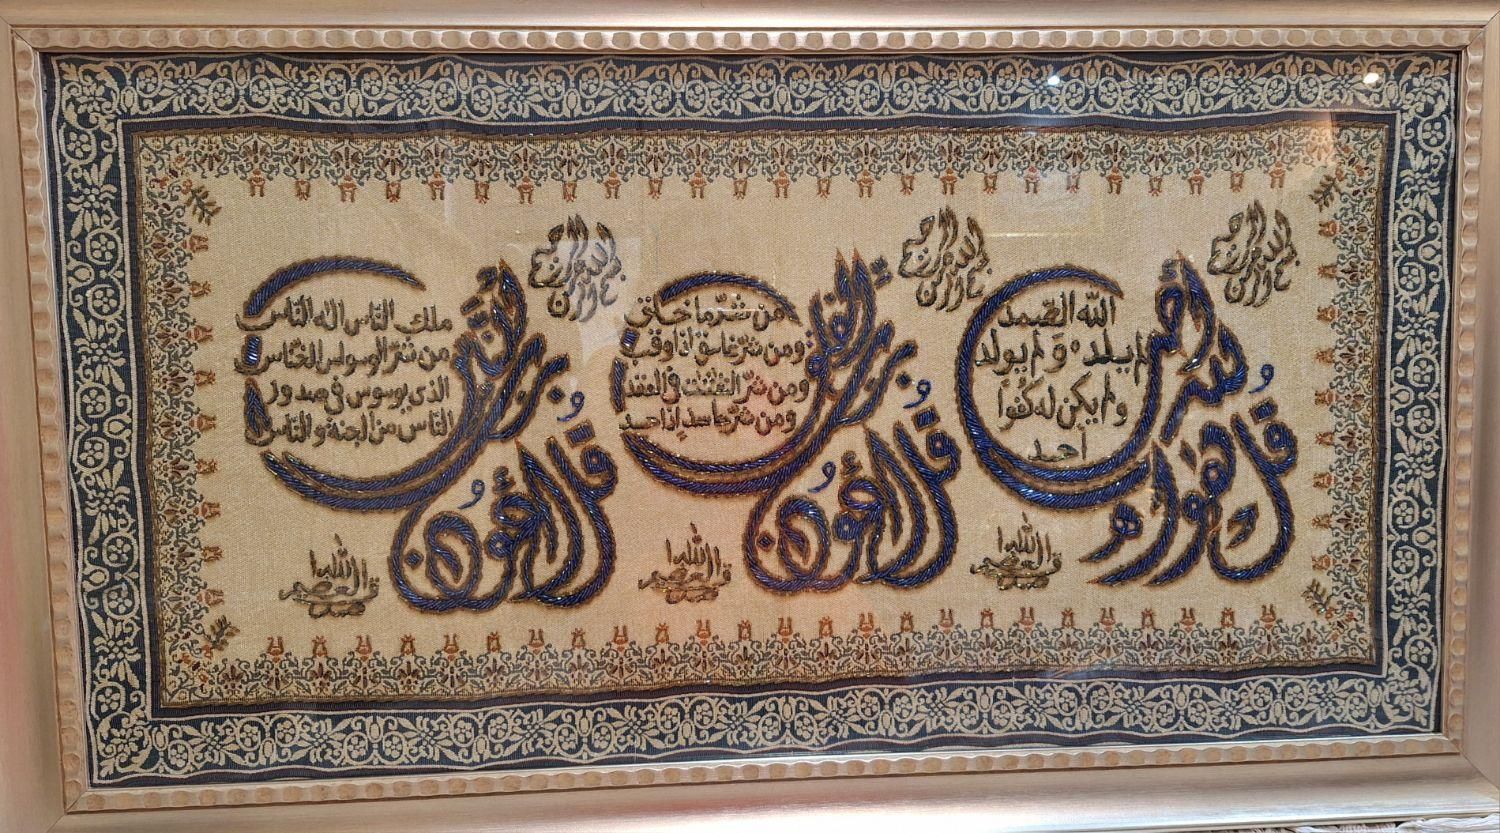 بسم الله الرحمن الرحيم
قل هو الله أحد
الله الصمد
لم يلد ولم يولد
ولم يكن له كفوا
احد
صدق الله العظيم
بسم الله الرحمن الرحيم
قل أعوذ برب الفلق
من شر ما خلق
ومن شر غاسق اذا وقب
ومن شر النفثت في العقد
ومن شر حاسد إذا حسد
صدق الله العظيم
بسم الله الرحمن الرحيم
قل أعوذ برب النَّاس
ملك الناس اله الناس
من شر الوسواس الخنَّاس
الذي يوسوس في صدور
الناس من الجنة والناس
صدق الله العظيم